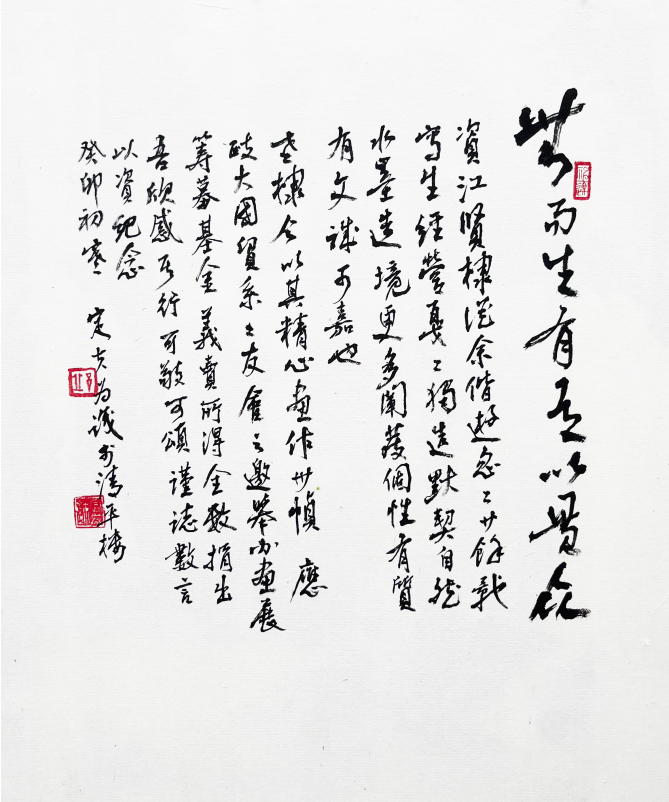 而生有以
資江賢棣從余偕遊忽〻廿餘載
寫生經營戛〻獨造默契自然
水墨造境更多闡發個性有質
有文誠可嘉也
棣今以其精心畫作卅幀 應
政大國貿系之友會之邀舉办畫展
籌募基金義賣所得全数捐出
吾欣感行可敬可頌謹誌數言
以資紀念
癸卯初寒 定為識於清平樓